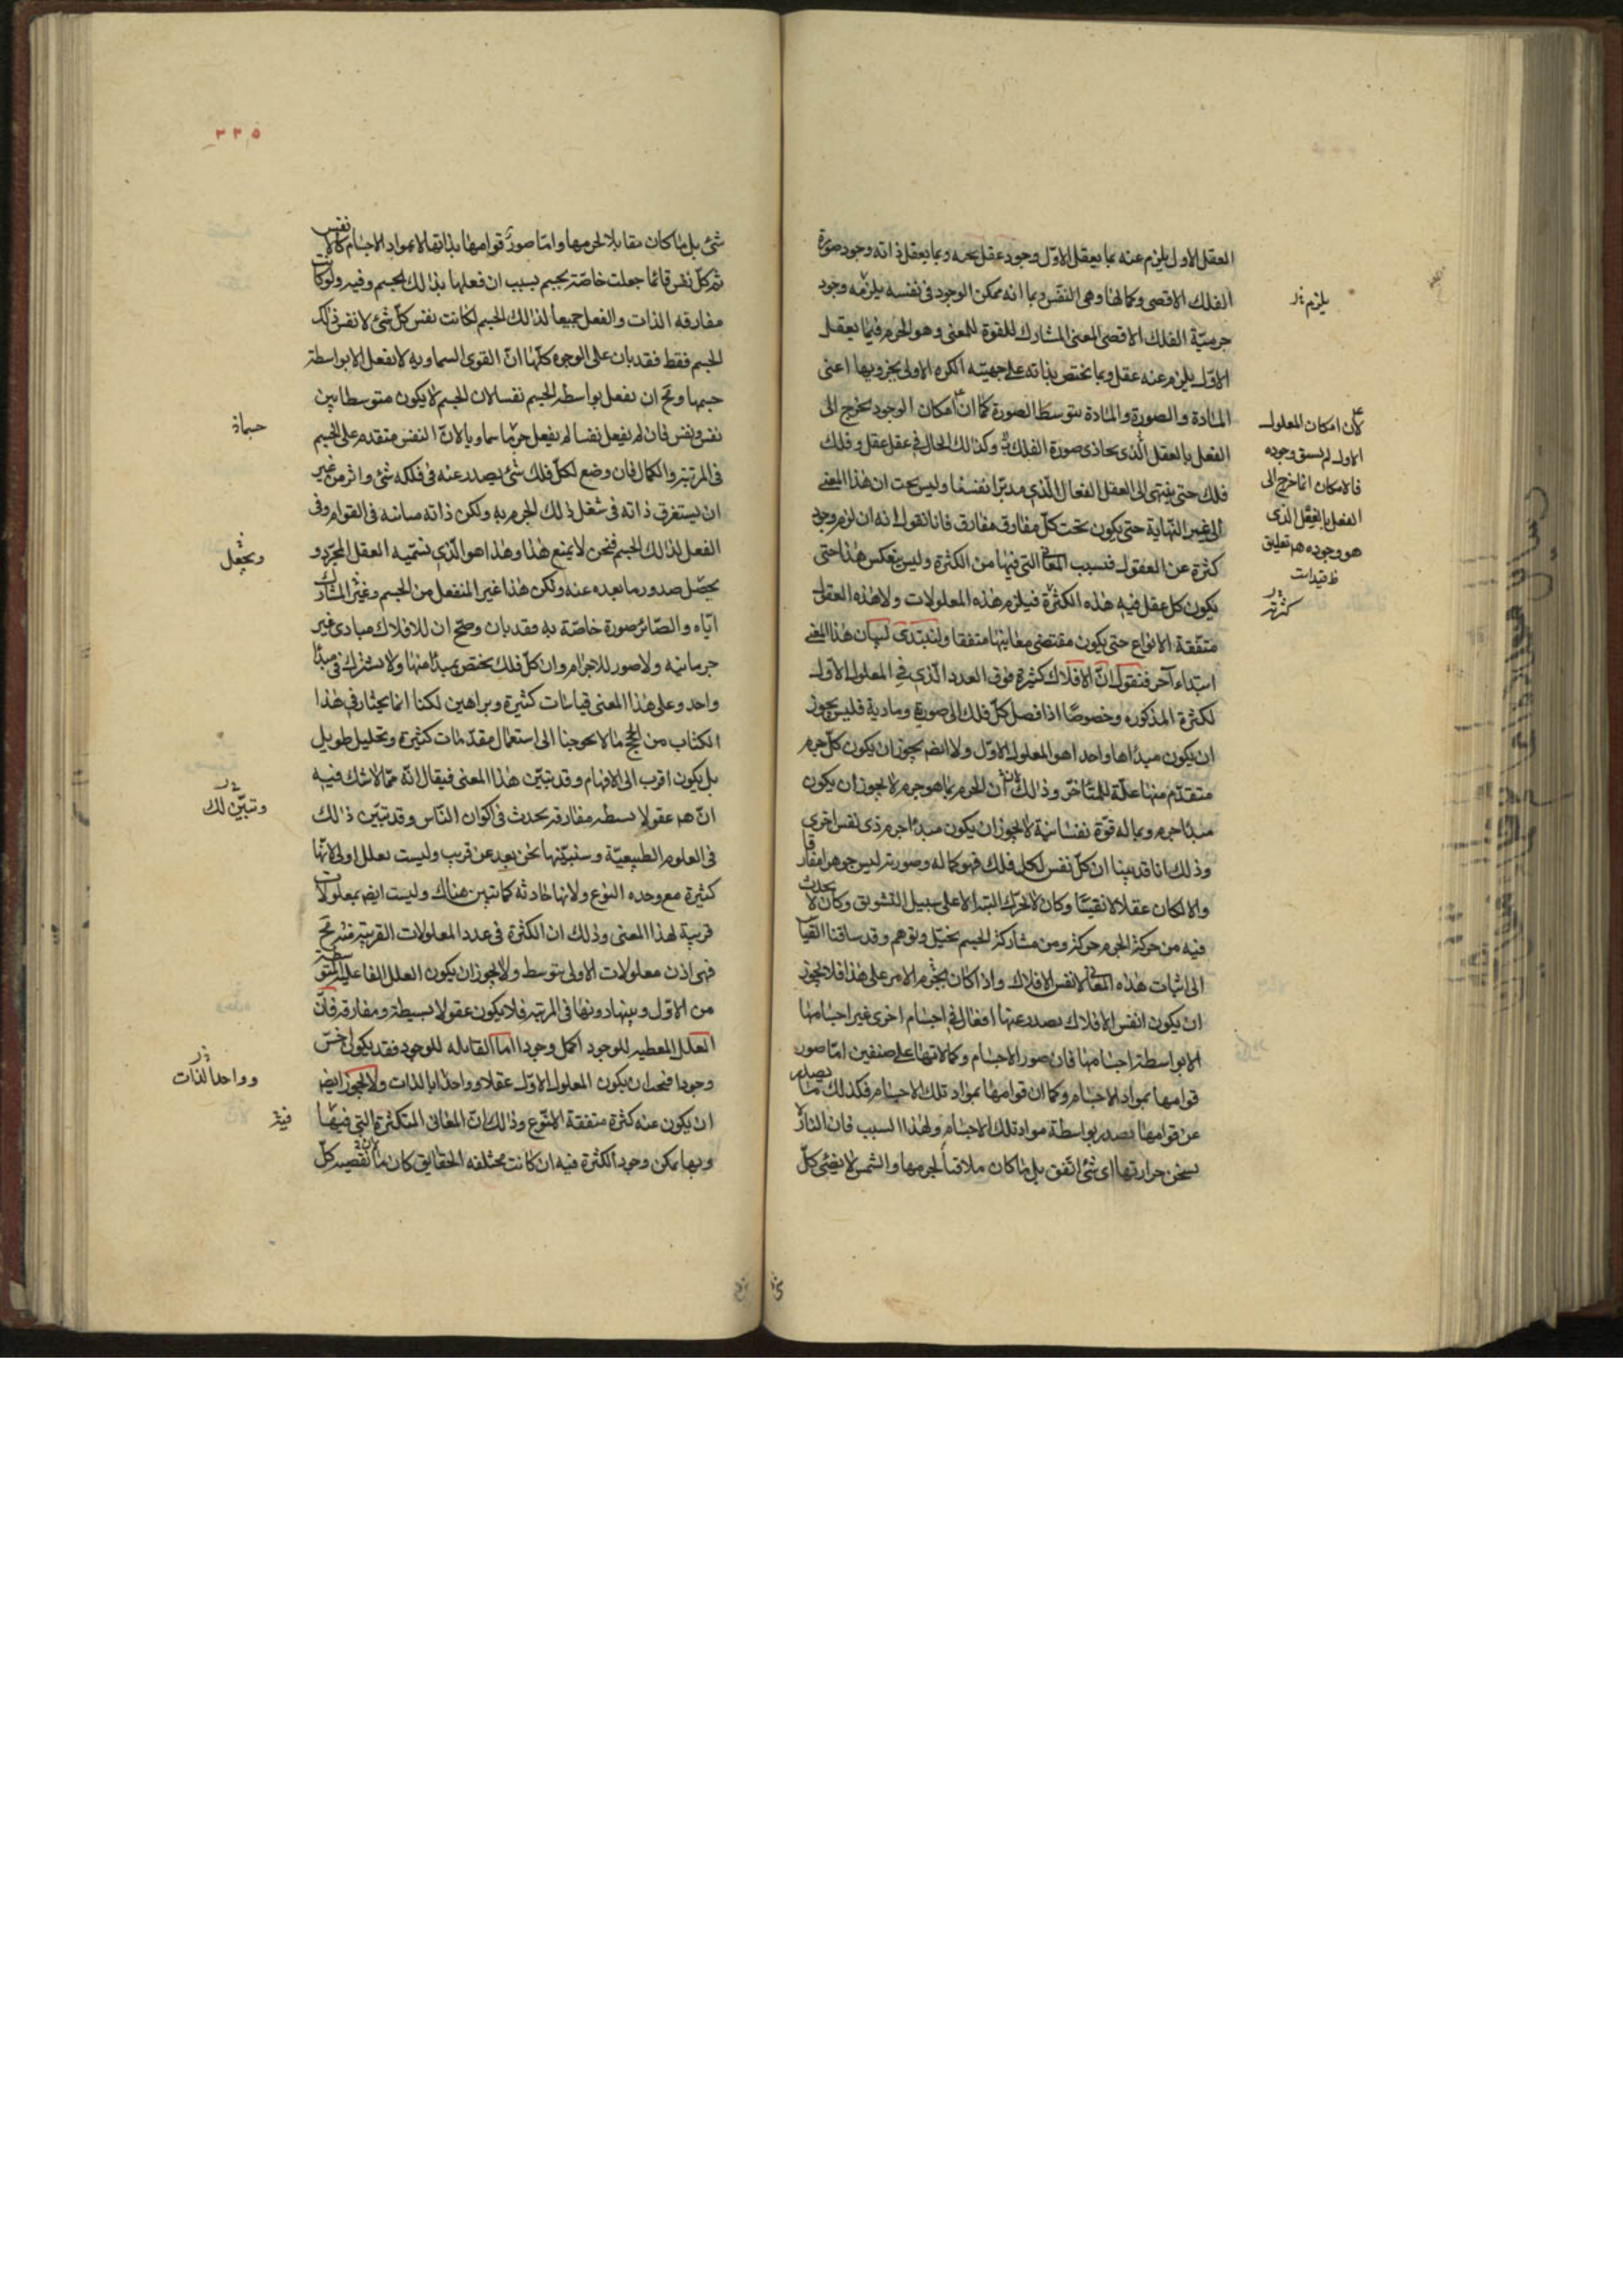 العقل الاول يلزم عنه بما يعقل الاوّل وجود عقل تحته وبما يعقل ذاته وجود صورة
الفلك الاقصى وكمالها وهى النفس وبما انه ممكن الوجود فى نفسه يلزمه وجود
جرميّة الفلك الاقصى المعنى المشارك للقوة للمعنى وهو الجرم فبما يعقل
الاوّل يلزم عنه عقل وبما تختص بذاته على جهتيه الكره الاولى بجزويها اعنى
المادة والصورة والمادة بتوسط الصورة كما ان امكان الوجود يخرج الى
الفعل بالعقل الّذى يحاذى صورة الفلك وكذالك الحال فى عقل عقل وفلك
فلك حتى ينتهى الى العقل الفعال الّذى مدبّر انفسنا وليس يجب ان هذا المعنى
الى غير النّهاية حتى يكون تحت كلّ مفارق مفارق فانا نقول انه ان لزم وجود
كثرة عن العقول فبسبب المعانى التى فيها من الكثرة وليس ينعكس هذا حتى
يكون كل عقل فيه هذه الكثرة فيلزم هذه المعلولات ولا هذه العقول
متفّقة الانواع حتى يكون مقتضى معانيها متفقا ولنبتدى لبيان هذا المعنى
ابتداء آخر فنقول انّ الافلاك كثيرة فوق العدد الّذى فى المعلول الاوّل
لكثرة المذكوره وخصوصًا اذا فصل كلّ فلك الى صورة ومادية فليس يجوز
ان يكون مبداها واحدا هو المعلول الاوّل ولا ايضم يجوز ان يكون كلّ جرم
متقدّم منها علّة للمتّاخّر وذالك انّ الجرم بما هو جرم لا يجوز ان يكون
مبدا جرم وبما له قوّة نفسانية لا يجوز ان يكون مبدا جرم ذى نفس اخرى
وذلك انا قد بينا ان كلّ نفس لكل فلك فهو كماله وصورته ليس جوهرا مفارقا
والا لكان عقلا لا نفسًا وكان لا يحرّك البتة الا على سبيل التشويق وكان لا يحدث
فيه من حركة الجرم حركة ومن مشاركة الجسم تخيّل وتوهم وقد ساقنا القياس
الى اثبات هذه المعانى لانفس الافلاك واذا كان الامر على هذا فلا يجوز
ان يكون انفس الافلاك يصدر عنها افعال فى اجسام اخرى غير اجسامها
الا بواسطة اجسامها فان صور الاجسام وكمالاتها على صنفين امّا صور
قوامها بمواد الاجسام وكما ان قوامها بمواد تلك الاجسام فكذلك ما يصدر
عن قوامها يصدر بواسطة مواد تلك الاجسام ولهذا السبب فان النار لا
يسخن حرارتها اى شئ اتّفق بل ما كان ملاقيا لجرمها والشمس لا يضئ كلّ
يلزم
لان امكان المعلول
الاول لم يسبق وجوده
فالامكان انما خرج الى
الفعل بالعقل الّذى
هو وجوده هم تعليق
كثرته
٣٣٥
شئ بل ما كان مقابلا لجرمها وامّا صور قوامها بذاتها لا بمواد الاجسام كالانفس
ثم كلّ نفس فانما جعلت خاصّة بجسم بسبب ان فعلها بذالك الجسم وفيه ولو كانت
مفارقه الذات والفعل جميعا لذالك الجسم لكانت نفس كلّ شئ لا نفس ذلك
الجسم فقط فقد بان على الوجوه كلّها انّ القوى السماويه لا تفعل الا بواسطة
جسمها ومح ان تفعل بواسطه الجسم نفسا لان الجسم لا يكون متوسطا بين
نفس ونفس فان لم يفعل نفسا لم يفعل جرما سماويا لانّ النفس متقدم على الجسم
فى المرتبة والكمال فان وضع لكلّ فلك شئ يصدر عنه فى فلكه شئ واثر من غير
ان يستغرق ذاته فى شغل ذلك الجرم به ولكن ذاته مباينه فى القوام وفى
الفعل لذالك الجسم فنحن لا يمنع هذا وهذا هو الّذى نسمّيه العقل المجرّد و
يحصّل صدور ما بعده عنه ولكن هذا غير المنفعل من الجسم وغير المشارك
ايّاه والصّائر صورة خاصّة به فقد بان وصحّ ان للافلاك مبادى غير
جرمانيه ولا صور للاجرام وان كلّ فلك يختص بمبدا منها ولا يشترك فى مبدا
واحد وعلى هذا المعنى قياسات كثيرة وبراهين لكنا انما نختار فى هذا
الكتاب من الحجج ما لا يحوجنا الى استعمال مقدّمات كثيرة وتحليل طويل
بل يكون اقرب الى الافهام وقد تبيّن هذا المعنى فيقال انّه ممّا لا شك فيه
انّ هم عقولا بسيطه مفارقه يحدث فى اكوان النّاس وقد تبيّن ذالك
فى العلوم الطبيعيّة وسنبيّنها نحن بعد عن قريب وليست بعلل اولى لانّها
كثيرة مع وحده النوع ولانها حادثه كما تبين هناك وليست ايضم بمعلولات
قريبة لهذا المعنى وذلك ان الكثرة فى عدد المعلولات القريبة منه مح
فهى اذن معلولات الاولى بتوسط ولا يجوز ان يكون العلل الفاعلية المتوسطة
من الاوّل وبينها دونها فى المرتبه فلا يكون عقولا بسيطة ومفارقه فانّ
العلل المعطيه للوجود اكمل وجودا اما القابله للوجود فقد يكون اخسّ
وجودا فيجب ان يكون المعلول الاوّل عقلا وواحدا بالذات ولا يجوز ايضم
ان يكون عنه كثرة متفقة النّوع وذالك انّ المعانى المتكثرة التى فيها
وبها يمكن وجود الكثرة فيه ان كانت مختلفه الحقايق كان ما تقضيه كلّ
ويجعل
وتبيّن لك
وواحد الذات
فيه